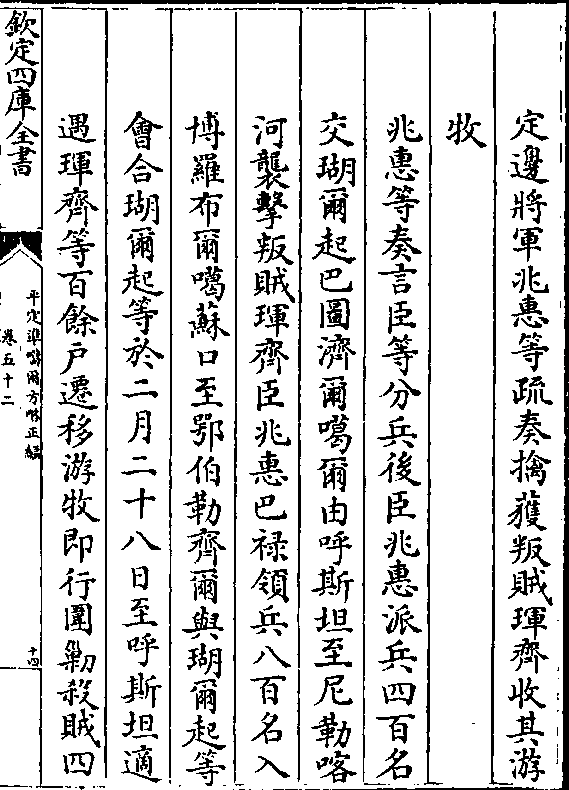 定邊將軍兆惠等疏奏擒獲叛賊琿齊收其游
牧
兆惠等奏言臣等分兵後臣兆惠派兵四百名
交瑚爾起巴圖濟爾噶爾由呼斯坦至尼勒喀
河襲擊叛賊琿齊臣兆惠巴禄領兵八百名入
博羅布爾噶蘇口至鄂伯勒齊爾與瑚爾起等
會合瑚爾起等於二月二十八日至呼斯坦適
遇琿齊等百餘户遷移游牧即行圍勦殺賊四
欽定四庫全書
平定準噶爾方略正編
卷五十二
十四